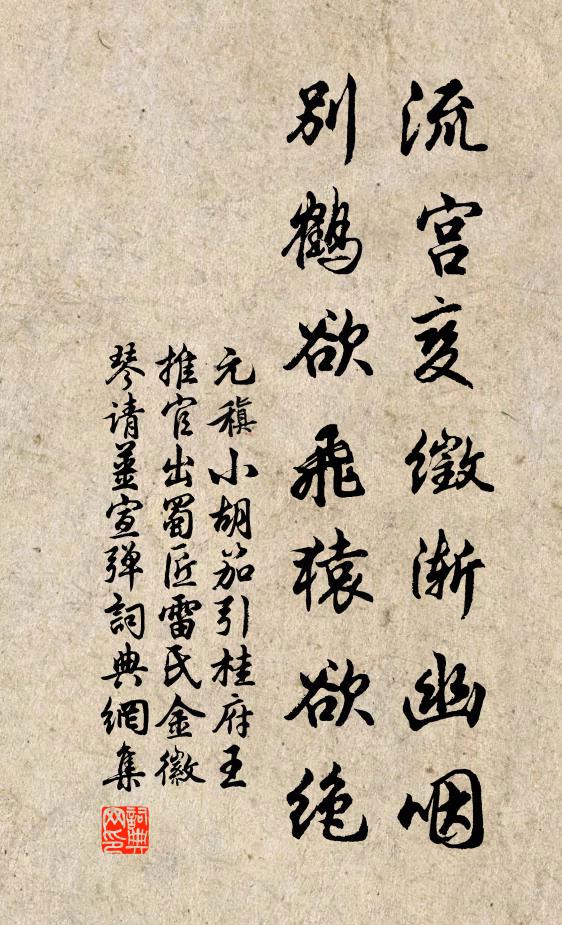 流宫变徵渐幽咽
别鹤欲飞猿欲绝
元稹小胡笳引桂府王
推官出蜀匠雷氏金徽
琴请姜宣弹詞典網集
詞典网印